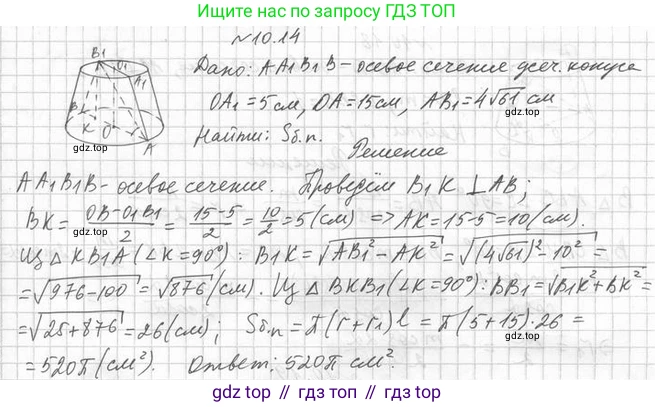 Ищите нас по запросу ГДЗ ТОП
№10.14
B1 O1 A1
Дано: AA1B1B - осевое сечение усеч. конуса
OA1 = 5 см, OA = 15 см, AB1 = 4√61 см
gdz.top
gdz.top
B K O A
Найти: Sб.п.
gdz.top
gdz.top
Решение
AA1B1B - осевое сечение. Проведём B1K ⊥ AB;
BK = (OB - O1B1)/2 = (15-5)/2 = 10/2 = 5 (см) => AK = 15-5 = 10 (см).
gdz.top
gdz.top
Из △ KB1A (∠K = 90°): B1K = √(AB1² - AK²) = √((4√61)² - 10²) =
= √(976-100) = √876 (см). Из △ BKB1 (∠K = 90°): BB1 = √(B1K² + BK²) =
= √(25+876) = 26 (см); Sб.п = π(r+r1)l = π(5+15)·26 =
= 520π (см²). Ответ: 520π см².
gdz.top
gdz.top
gdz.top // gdz.top // gdz.top